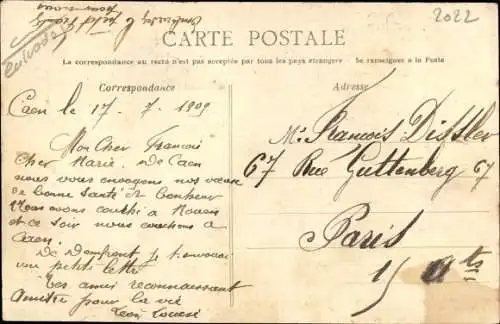 2022
Calvados
CARTE POSTALE
La correspondance au recto n'est pas acceptée par tous les pays étrangers - Se renseigner à la Poste
Correspondance
Adresse
Caen le 17 - 7 - 1909
Mon Cher François
Cher Marie. De Caen
nous vous envoyons nos vœux
de bonne Santé et bonheur
Nous avons couché à Rouen
et ce soir nous couchons à
Caen.
De Domfront je t'envoai
un petit lettre
Tes amis reconnaissant
Amitié pour la vie
Léon
Mr François Dissler
67 Rue Guttenberg 67
Paris
15